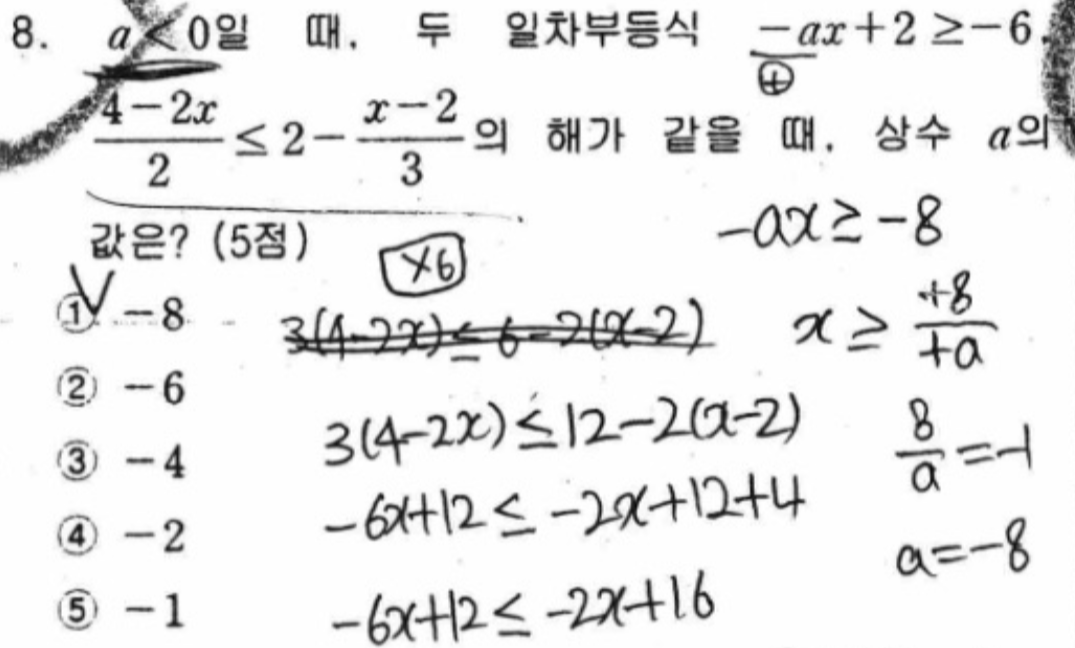 8. a<0일 때, 두 일차부등식 -ax+2≥-6,
⊕
(4-2x)/2 ≤ 2 - (x-2)/3 의 해가 같을 때, 상수 a의
값은? (5점)
① -8
② -6
③ -4
④ -2
⑤ -1
×6
3(4-2x)≤6-2(x-2)
3(4-2x)≤12-2(x-2)
-6x+12≤-2x+12+4
-6x+12≤-2x+16
-ax≥-8
x≥ +8/+a
8/a=-1
a=-8